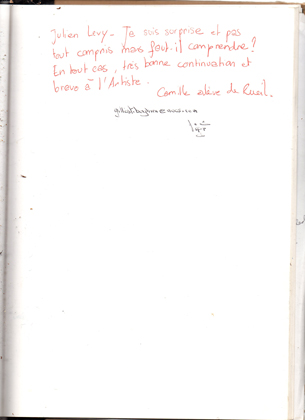 Julien Levy - Je suis surprise et pas
tout compris mais faut-il comprendre?
En tout cas, très bonne continuation et
bravo à l'Artiste.
Camille élève de Rueil.